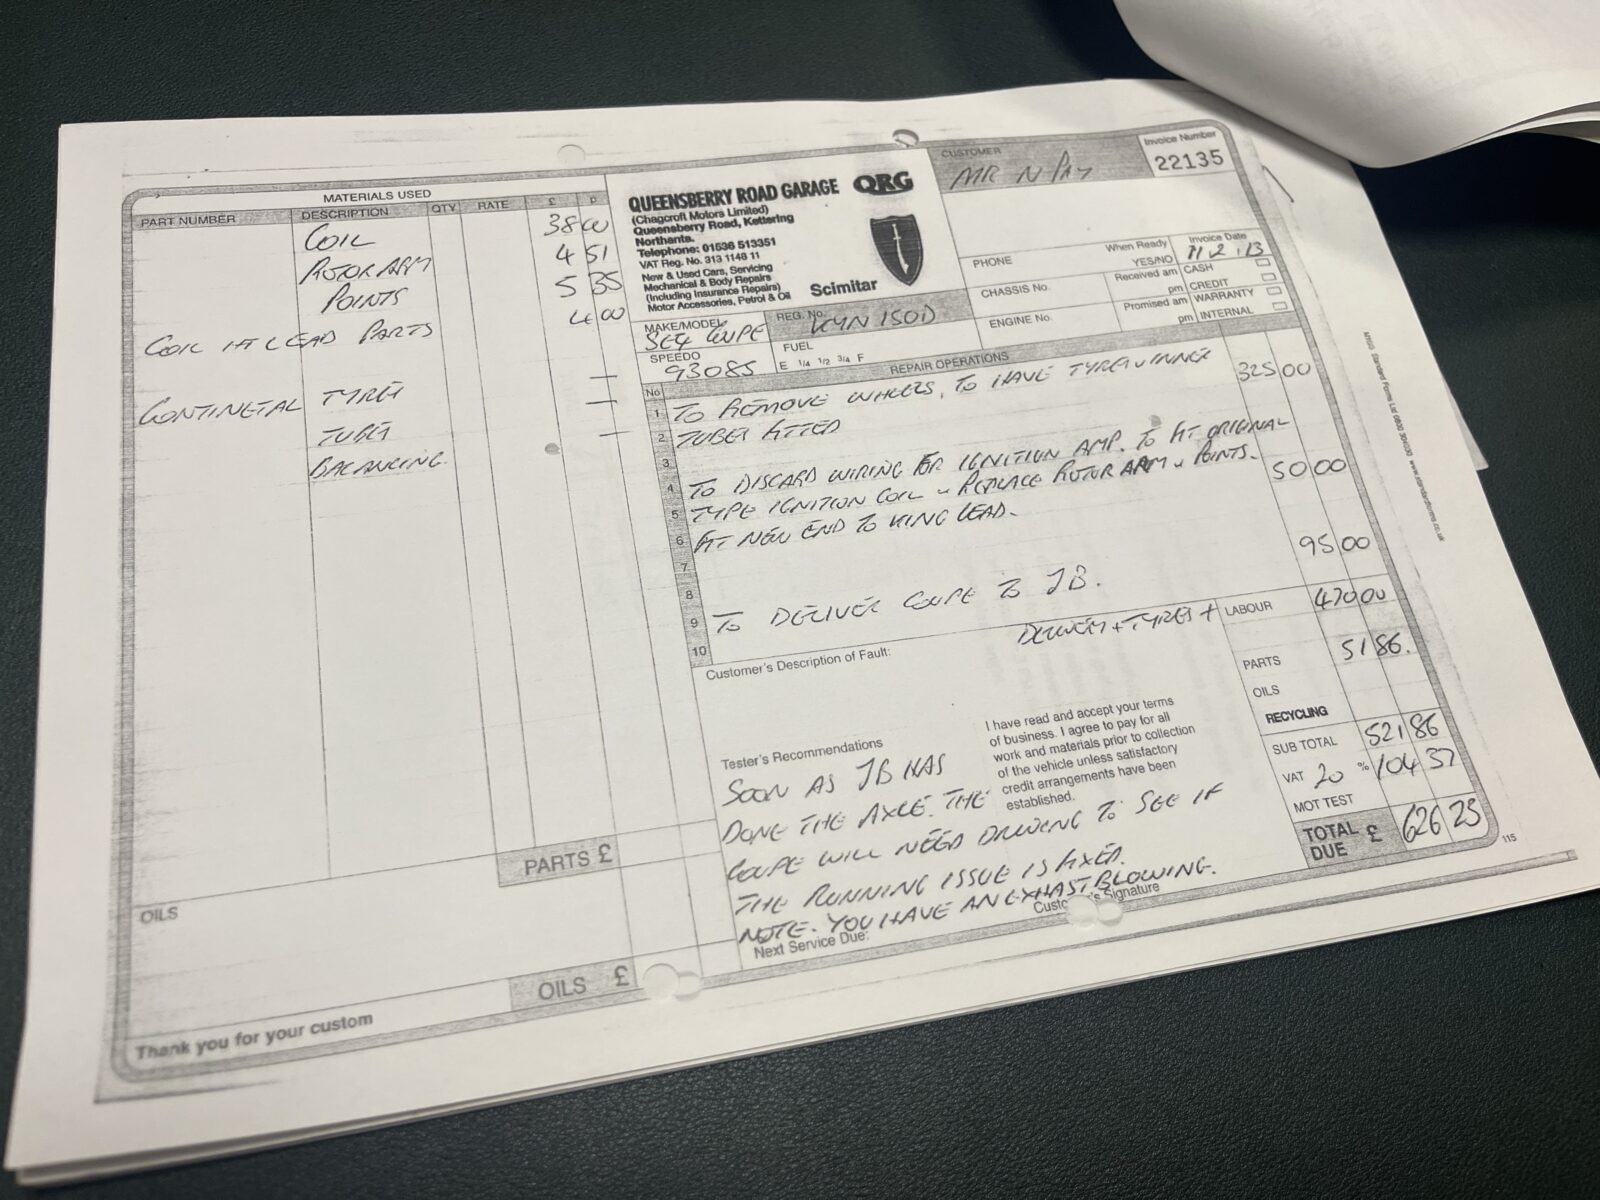 MATERIALS USED
PART NUMBER DESCRIPTION QTY RATE £ P
COIL 38 00
ROTOR ARM 4 51
POINTS 5 35
COIL HT LEAD PARTS 4 00
CONTINETAL TYRES —
TUBES —
BALANCING. —
PARTS £
OILS
OILS £
Thank you for your custom
QUEENSBERRY ROAD GARAGE QRG
(Chagcroft Motors Limited)
Queensberry Road, Kettering
Northants.
Telephone: 01536 513351
VAT Reg. No. 313 1148 11
New & Used Cars, Servicing
Mechanical & Body Repairs
(Including Insurance Repairs)
Motor Accessories, Petrol & Oil
Scimitar
CUSTOMER
MR N PAY
Invoice Number
22135
PHONE
When Ready
YES/NO
Invoice Date
11.2.13
CHASSIS No.
Received am
pm
CASH
CREDIT
ENGINE No.
Promised am
pm
WARRANTY
INTERNAL
MAKE/MODEL
SE4 COUPE
REG. No.
KYN 150D
SPEEDO
93085
FUEL
E 1/4 1/2 3/4 F
No REPAIR OPERATIONS
1 TO REMOVE WHEELS, TO HAVE TYRES & INNER 325 00
2 TUBES FITTED
3
4 TO DISCARD WIRING FOR IGNITION AMP. TO FIT ORIGINAL
5 TYPE IGNITION COIL & REPLACE ROTOR ARM & POINTS. 50 00
6 FIT NEW END TO KING LEAD.
7
8 95 00
9 TO DELIVER COUPE TO JB.
10
DELIVERY + TYRES + LABOUR 470 00
Customer's Description of Fault:
PARTS 51 86.
OILS
RECYCLING
SUB TOTAL 521 86
VAT 20 % 104 37
MOT TEST
TOTAL DUE £ 626 23
I have read and accept your terms
of business. I agree to pay for all
work and materials prior to collection
of the vehicle unless satisfactory
credit arrangements have been
established.
Tester's Recommendations
SOON AS JB HAS
DONE THE AXLE. THE
COUPE WILL NEED DRIVING TO SEE IF
THE RUNNING ISSUE IS FIXED.
NOTE. YOU HAVE AN EXHAST BLOWING.
Customer's Signature
Next Service Due:
115